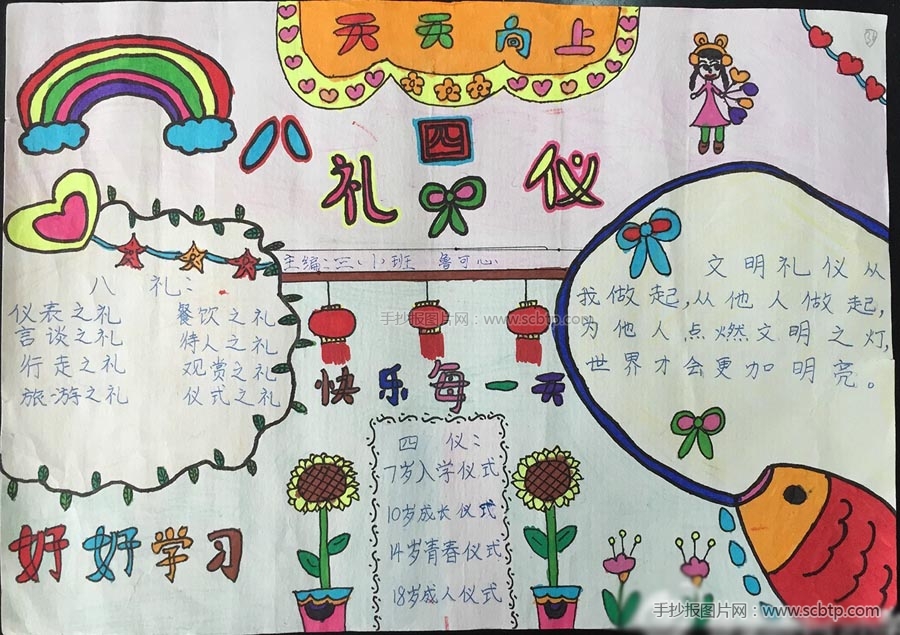 天天向上
八礼四仪
主编:三、小班 鲁可心
八 礼:
仪表之礼 餐饮之礼
言谈之礼 待人之礼
行走之礼 观赏之礼
旅游之礼 仪式之礼
文明礼仪从
我做起,从他人做起,
为他人点燃文明之灯,
世界才会更加明亮。
手抄报图片网:www.scbtp.com
快乐每一天
四 仪:
7岁入学仪式
10岁成长仪式
14岁青春仪式
18岁成人仪式
好好学习
手抄报图片网:www.scbtp.com